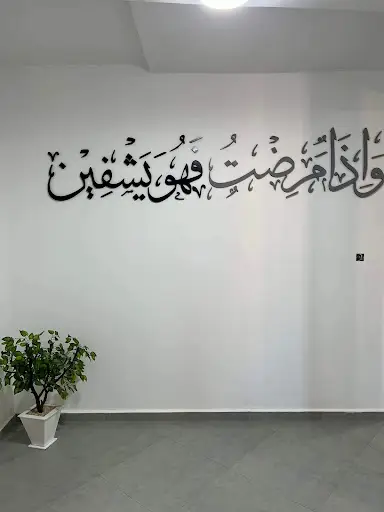 وَإِذَا مَرِضْتُ فَهُوَ يَشْفِين